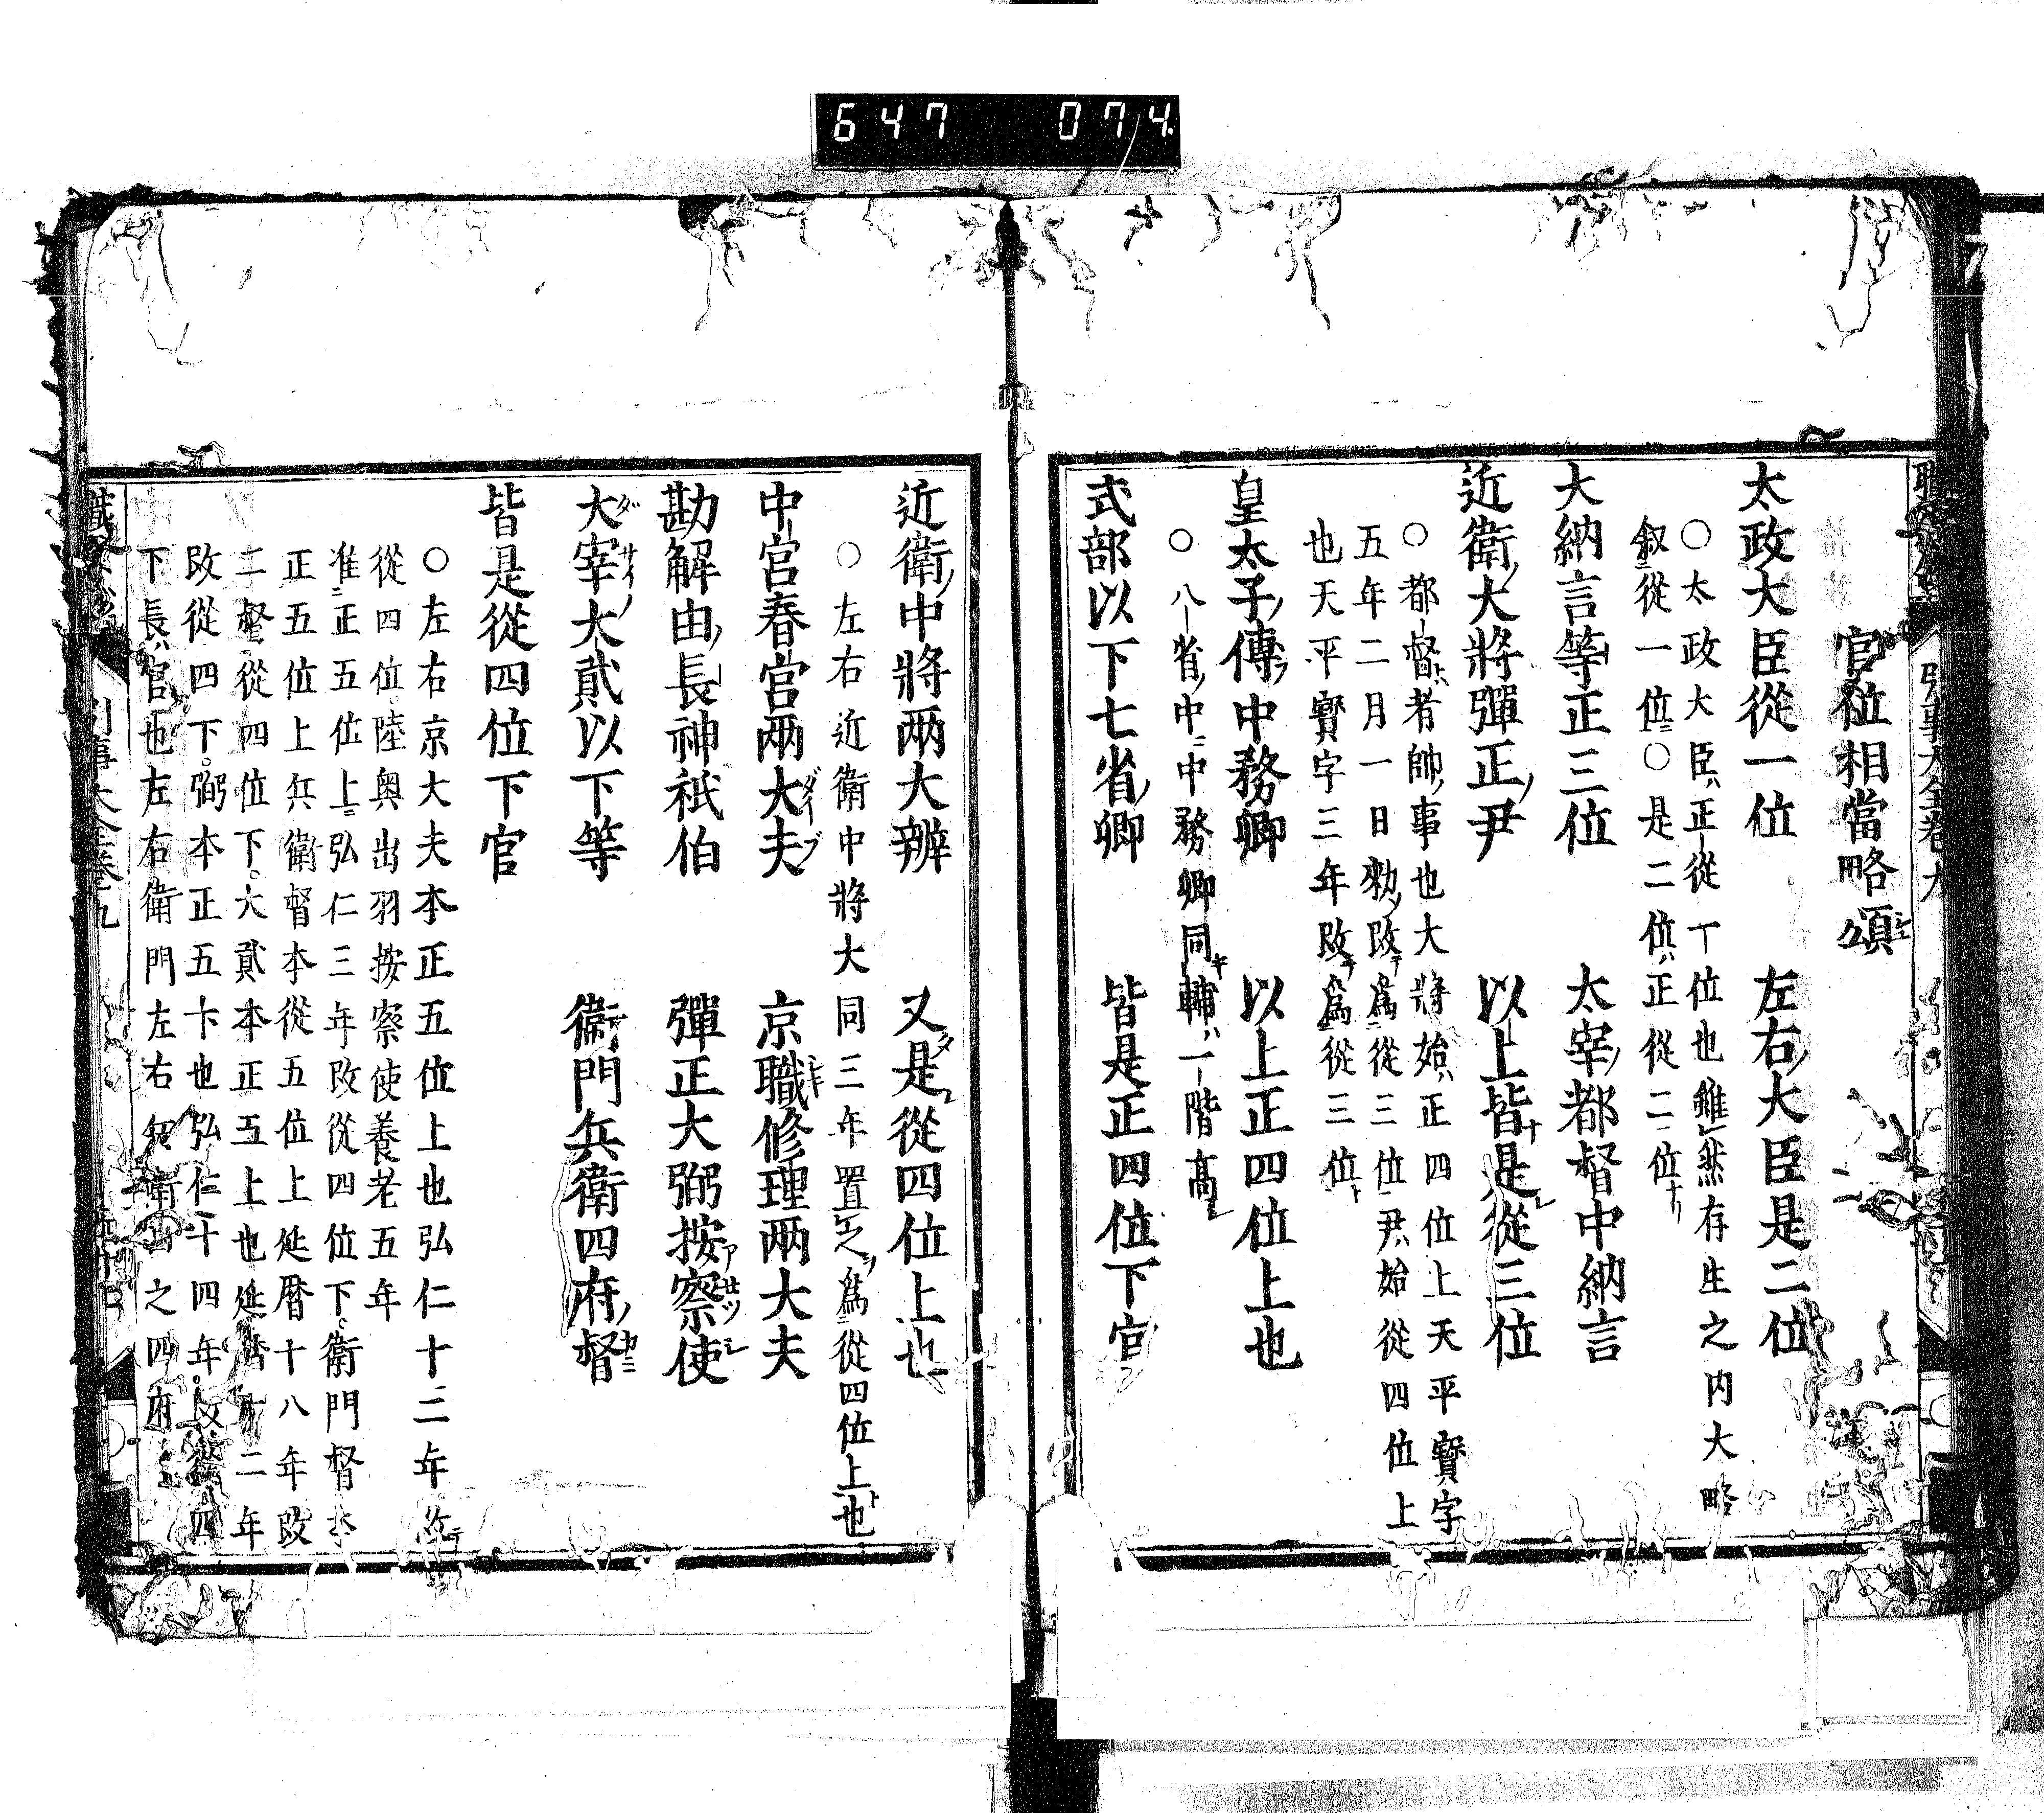 647 074
官位相當略頌
太政大臣從一位 左右大臣是二位
○太政大臣ハ正從一位也雖然存生之内大略
叙從一位ニ○是二位ハ正從二位ナリ
大納言等正三位 太宰都督中納言
近衛ノ大將彈正ノ尹 以上皆是從三位
○都督ハ者帥ノ事也大將始ハ正四位上天平寳字
五年二月一日勅ノ改爲從三位尹始從四位上
也天平寳字三年改テ爲從三位ト
皇太子ノ傅中務卿 以上正四位上也
○八省ノ中ニ中務卿同輔ハ一階高シ
式部以下七省ノ卿 皆是正四位下官
近衛ノ中將兩大辨 又是從四位上也
○左右近衛中將大同三年置之爲從四位上ト也
中宮春宮兩大夫 京職修理兩大夫
勘解由ノ長神祇伯 彈正大弼按察使
大宰ノ大貳以下等 衞門兵衛四府ノ督
皆是從四位下官
○左右京大夫本正五位上也弘仁十三年
從四位陸奥出羽按察使養老五年
准正五位上ニ弘仁三年改從四位下衛門督本
正五位上兵衛督本從五位上延暦十八年改
二督從四位下大貳本正五上也延暦十二年
改從四下弼本正五下也弘仁十四年改從四
下長ハ官也左右衛門左右兵衛之四府